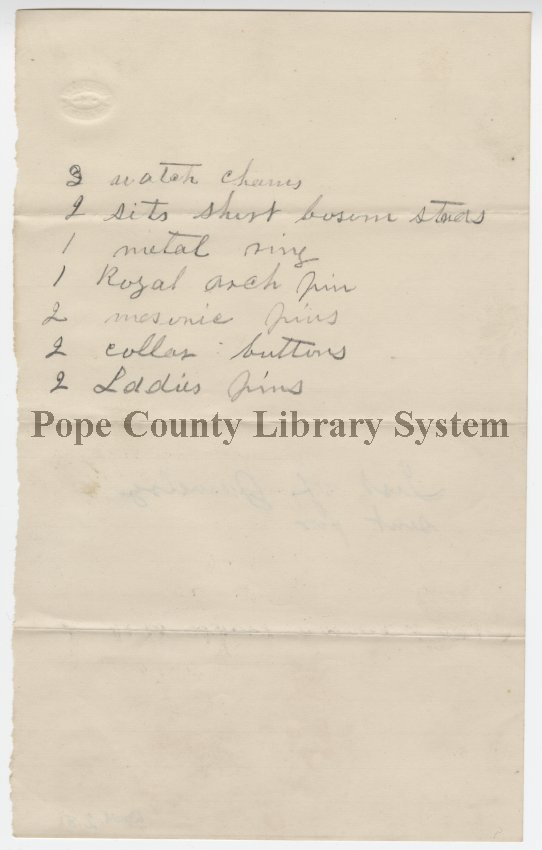 3 watch chains
2 sits shirt bosom studs
1 metal ring
1 Royal arch pin
2 mesonic pins
2 collar buttons
2 Laddies pins
Pope County Library System
List of
sent for